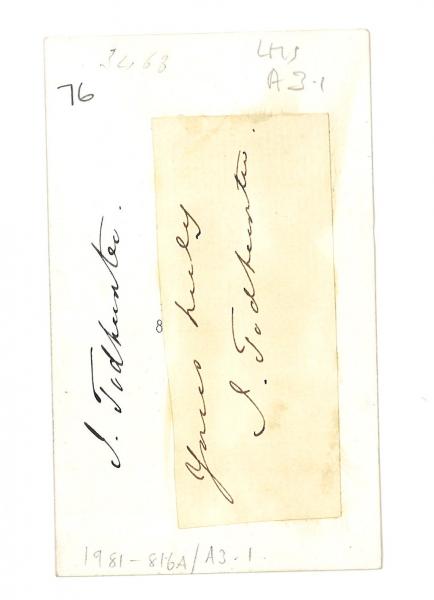 3468
LHS
A3.1
76
I. Todhunter.
8
Yours truly
I. Todhunter.
1981-816A/A3.1.